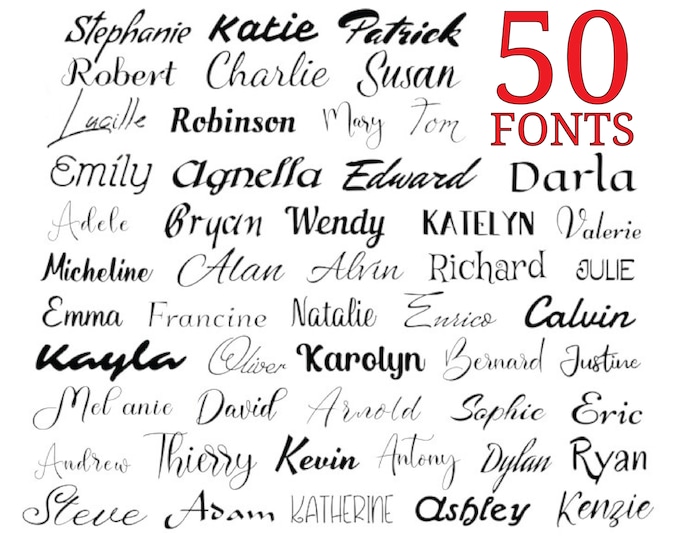 Stephanie Katie Patrick
Robert Charlie Susan
50
FONTS
Lucille Robinson Mary Tom
Emily Agnella Edward Darla
Adele Bryan Wendy KATELYN Valerie
Micheline Alan Alvin Richard JULIE
Emma Francine Natalie Enrico Calvin
Kayla Oliver Karolyn Bernard Justine
Melanie David Arnold Sophie Eric
Andrew Thierry Kevin Antony Dylan Ryan
Steve Adam KATHERINE Ashley Kenzie